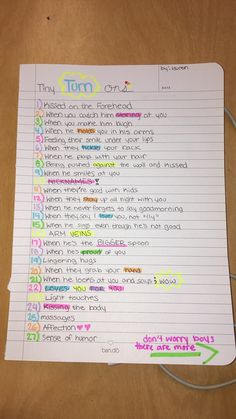 by: lauren
Tiny Turn ons
1) Kissed on the Forehead
2) When you catch him staring at you
3) When you make him laugh
4) When he holds you in his arms
5) Feeling their smile under your lips
6) When they tickle your back
7) When he plays with your hair
8) Being pushed against the wall and kissed
9) When he smiles at you
NICKNAMES!
11) When they're good with kids
12) When they stay up all night with you
13) When he never forgets to say goodmorning
14) When they say I love you not "ily"
15) When he sings even though he's not good
ARM VEINS
17) When he's the BIGGER spoon
18) When he's proud of you
19) Lingering hugs
20) When they grab your hand
21) When he looks at you and says wow
22) LOVES YOU FOR YOU
Light touches
24) Kissing the body
25) massages
26) Affection ♥♥
27) Sense of humor
don't worry boys
there are more